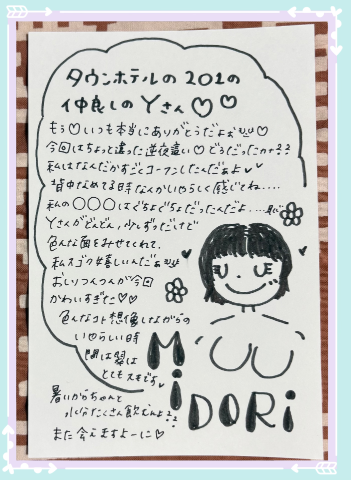 タウンホテルの202の
仲良しのYさん♡♡
もう♡いつも本当にありがとうだよぉ♡
今回はちょっと違った逆夜這い♡どうだったカナ??
私はなんだかすごコーフンしたんだぁよ
背中なめてる時なんかいやらしく感じてね....
私の〇〇〇はぐちょぐちょだったんだよ....
Yさんがどんどん、少しずつだけど
色んな面をみせてくれて、
私スゴク嬉しいんだぁ
おしりつんつんが今回
かわいすぎた♡♡
色んなコト想像しながらの
いやらしい時
間は翠は
とてもスキです
暑いからちゃんと
水分たくさん飲むんよ??
また会えますよーに♡
MiDORi